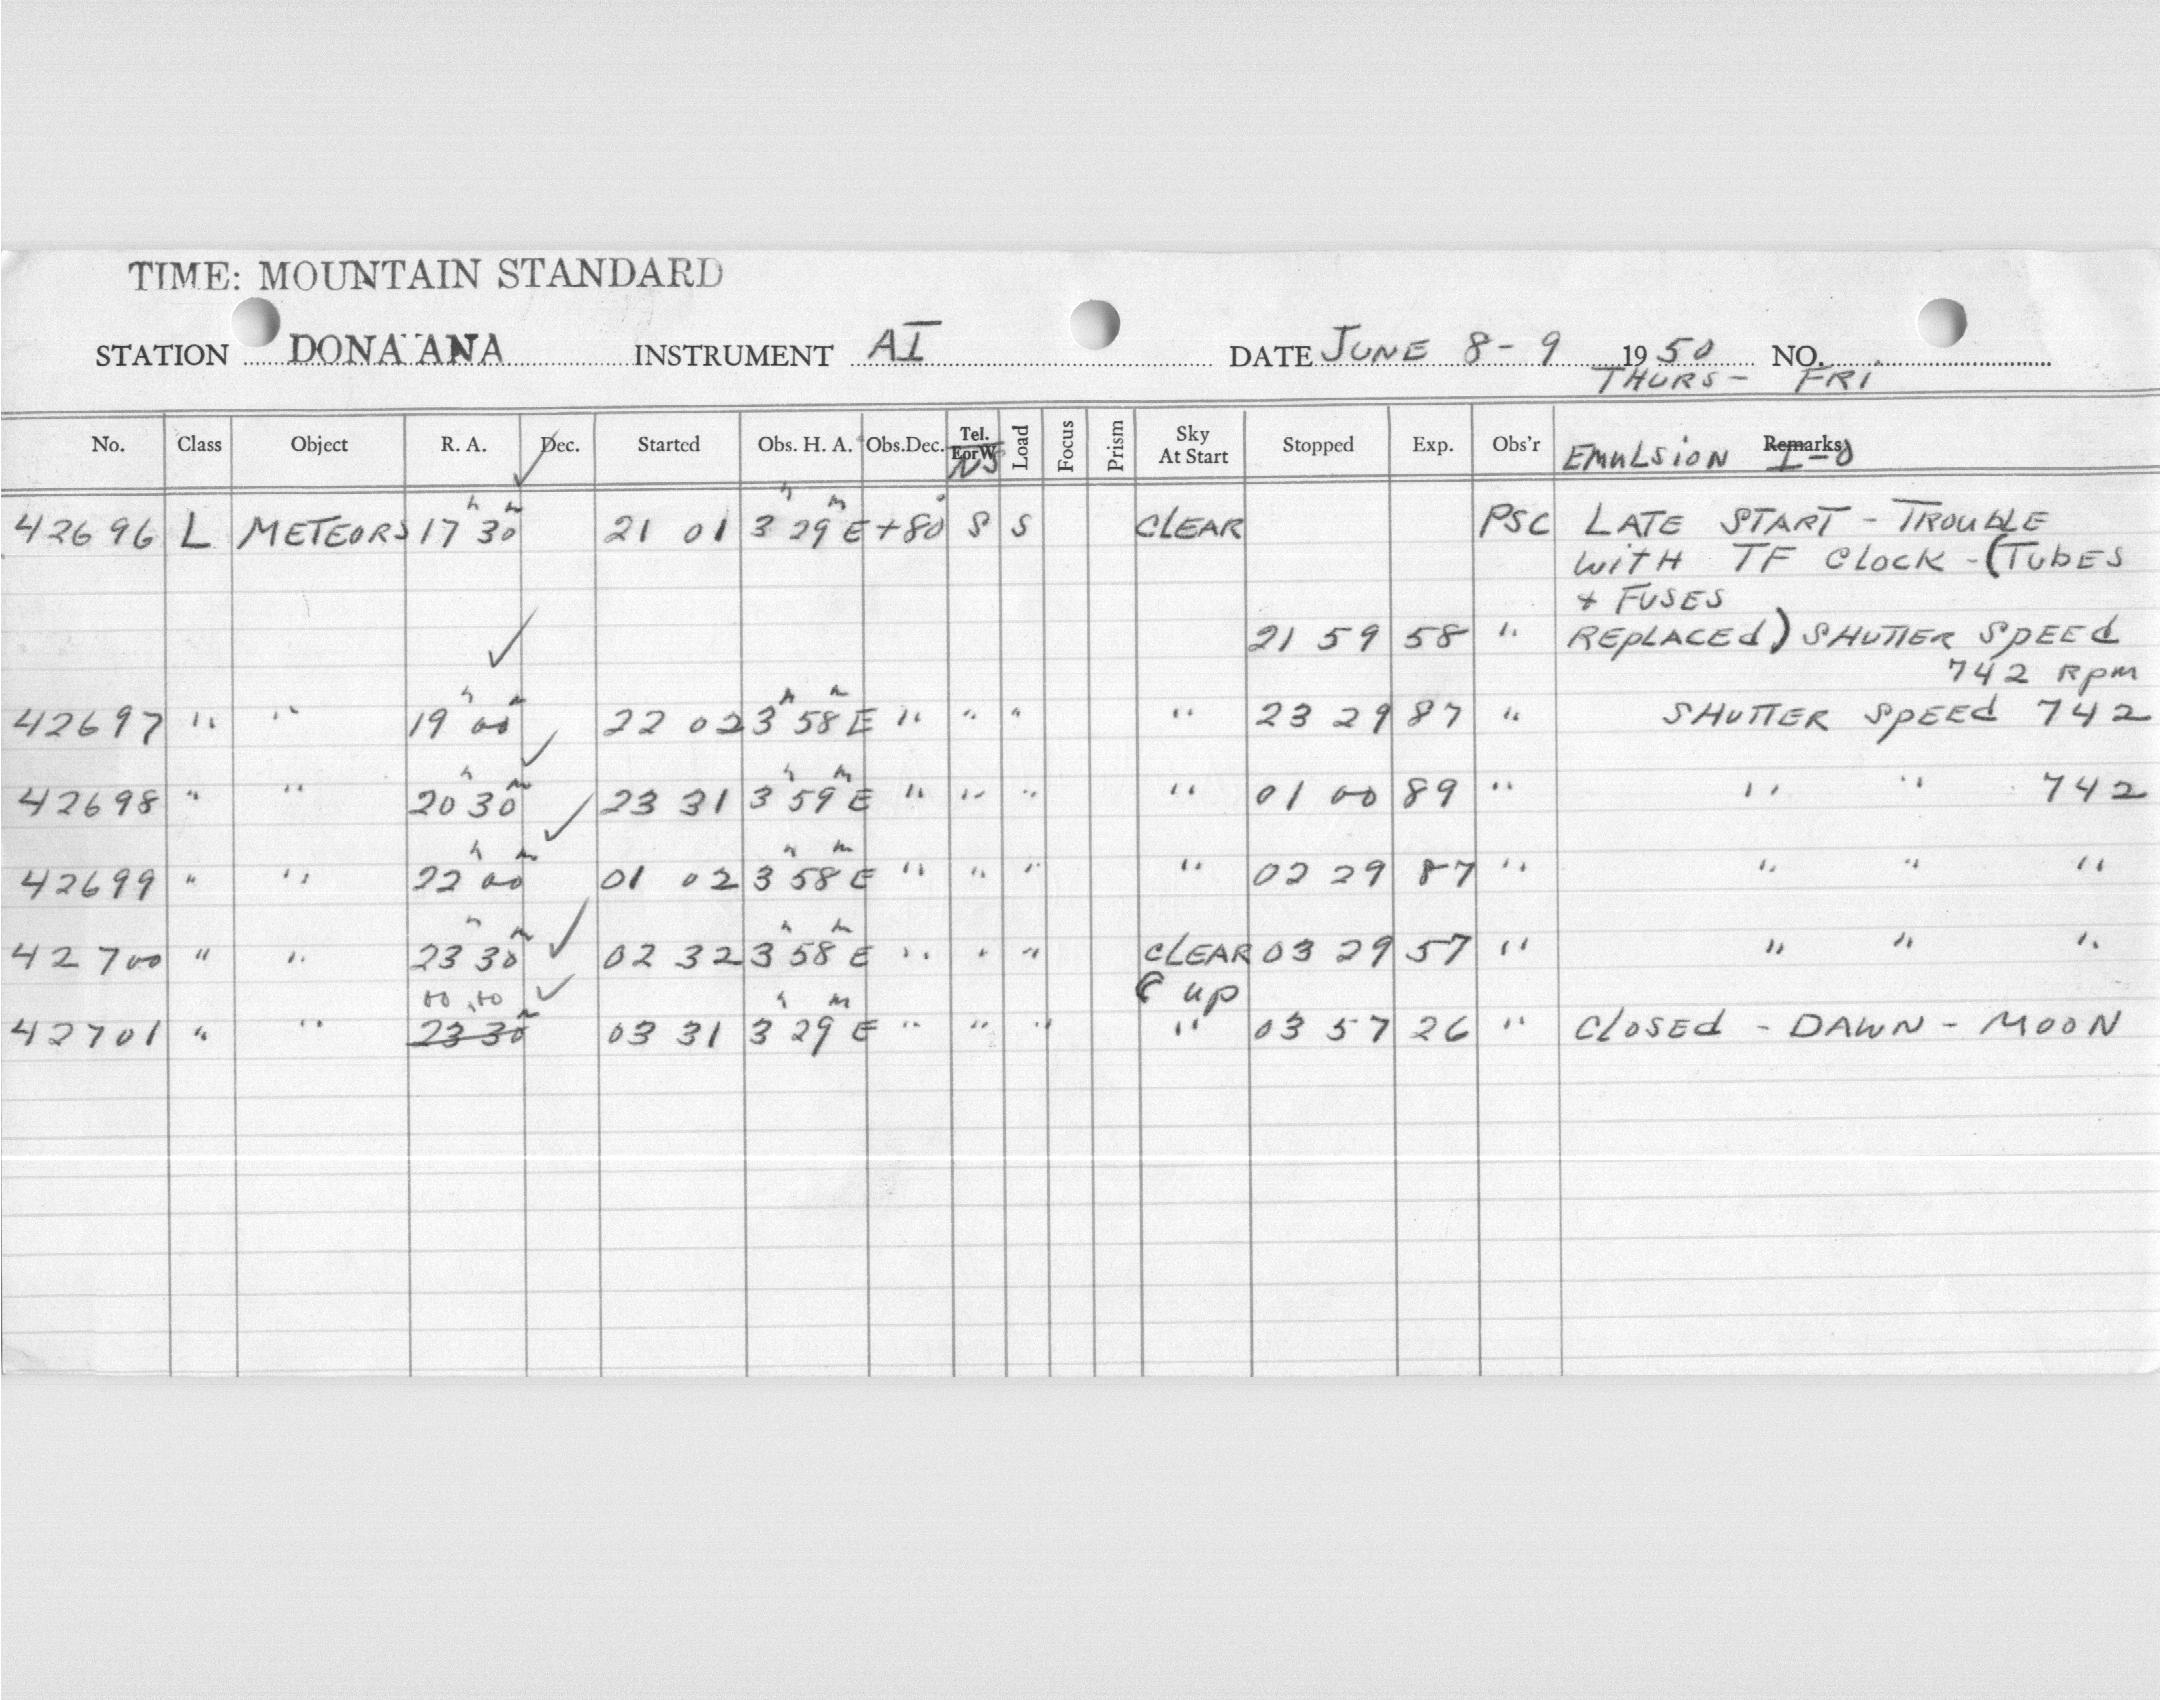 TIME: MOUNTAIN STANDARD
STATION DONA ANA INSTRUMENT AI DATE JUNE 8-9 1950 NO.
THURS- FRI
No. Class Object R. A. Dec. Started Obs. H. A. Obs.Dec. Tel. EorW NS Load Focus Prism Sky At Start Stopped Exp. Obs'r Remarks EMULSION I-O
42696 L METEORS 17h 30m ✓ 21 01 3h 29m E +80° S S CLEAR PSC LATE START - TROUBLE
WITH TF CLOCK - (TUBES
+ FUSES
✓ 21 59 58 " REPLACED) SHUTTER SPEED
742 RPM
42697 " " 19h 00m 22 02 3h 58m E " " " " 23 29 87 " SHUTTER SPEED 742
42698 " " 20h 30m ✓ 23 31 3h 59m E " " " " 01 00 89 " " " 742
42699 " " 22h 00m ✓ 01 02 3h 58m E " " " " 02 29 87 " " " "
42700 " " 23h 30m ✓ 02 32 3h 58m E " " " CLEAR 03 29 57 " " " "
00 00 ✓ ☾ up
42701 " " 23 30m 03 31 3h 29m E " " " " 03 57 26 " CLOSED - DAWN - MOON